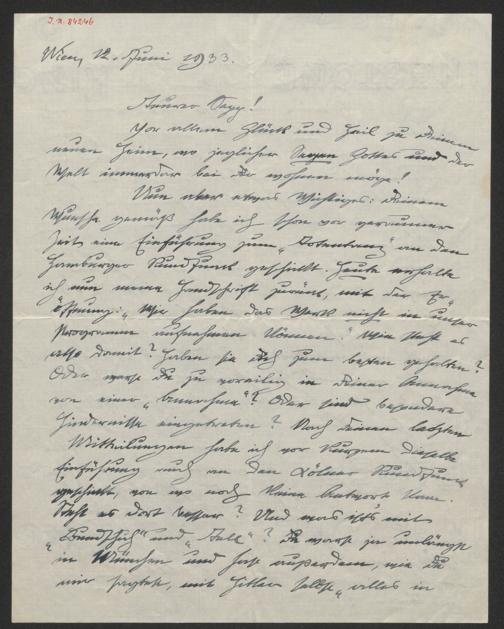 J.N. 84246
Wien, 12. Juni 1933.
Teurer Sepp!
Vor allem Glück und Heil zu Deinem
neuen Heim, wo jeglicher Segen Gottes und der
Welt immerdar bei Dir wohnen möge!
Nun aber etwas Wichtiges: Deinem
Wunsche gemäß habe ich schon vor geraumer
Zeit eine Einführung zum „Totentanz" an den
Hamburger Rundfunk geschickt. Heute erhalte
ich nun meine Handschrift zurück, mit der Er-
öffnung: „Wir haben das Werk nicht in unser
Programm aufnehmen können." Wie steht es
also damit? Haben sie Dich zum besten gehalten?
Oder warst Du zu voreilig in Deiner Annahme
von einer „Annahme"? Oder sind besondere
Hindernisse eingetreten? Nach Deinen letzten
Mitteilungen habe ich vor kurzem dieselbe
Einführung auch an den Kölner Rundfunk
geschickt, von wo noch keine Antwort kam.
Steht es dort besser? Und was ist's mit
und „Tell"? Du warst ja unlängst
in München und hast außerdem, wie Du
mir sagtest, mit Hitler selbst alles in